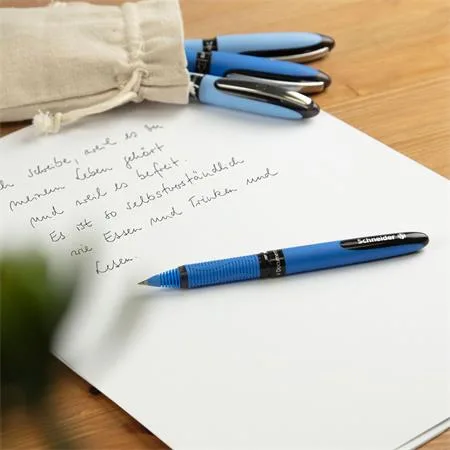 schreibe, weil es zu
meinem Leben gehört
und weil es befreit.
Es ist so selbstverständlich
wie Essen und Trinken und
Lesen.
Schneider